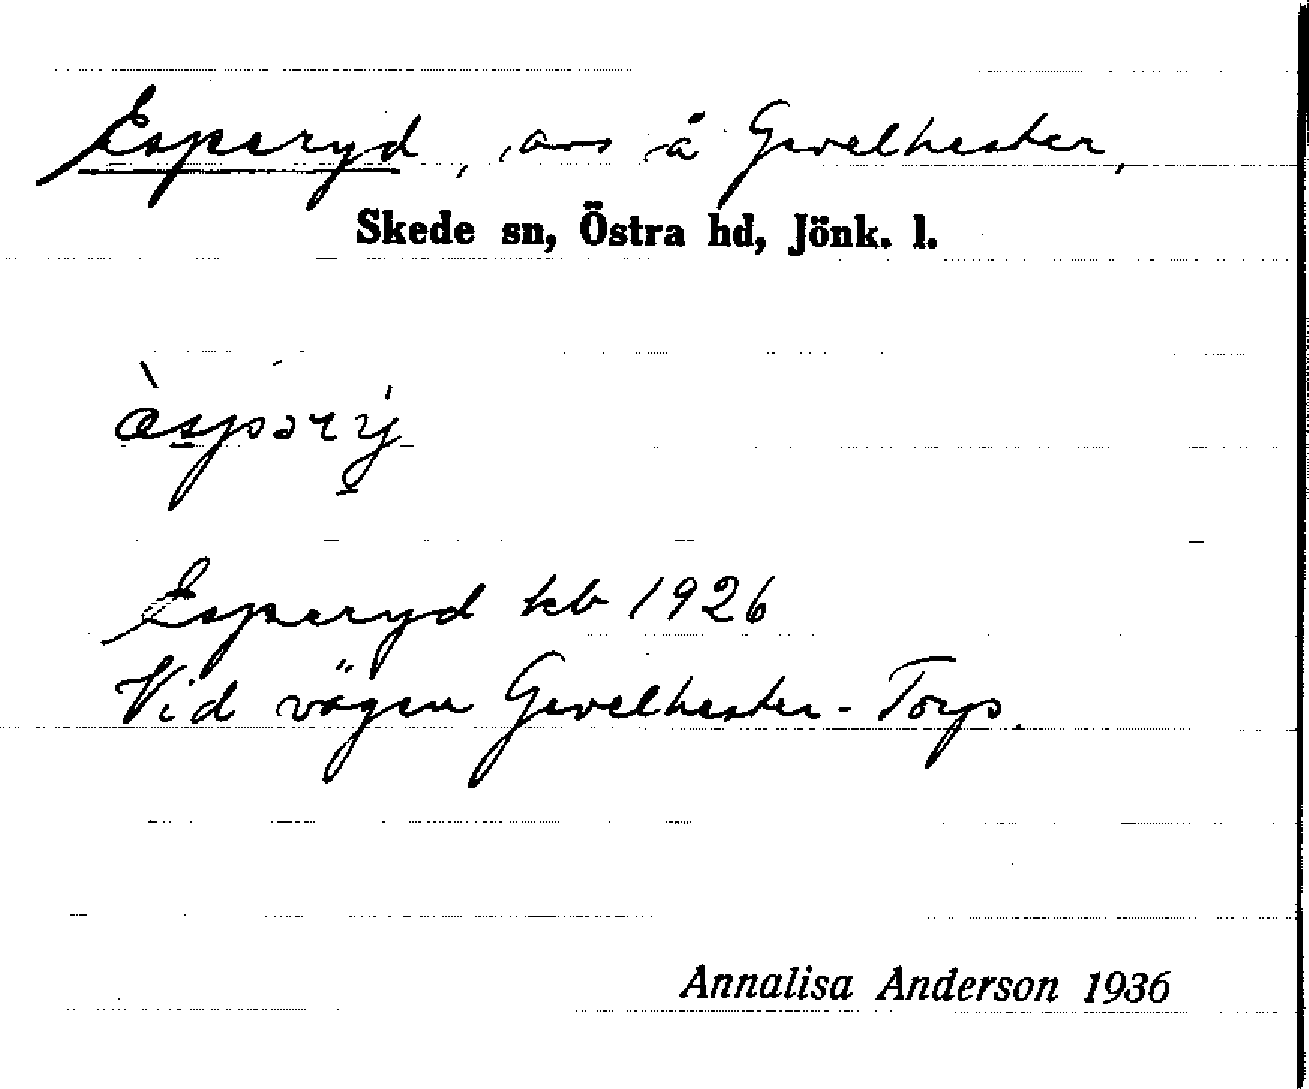 Esperyd, avs å Gevelhester,
Skede sn, Östra hd, Jönk. l.
æ̀spərý
Esperyd kb 1926
Vid vägen Gevelhester - Torp.
Annalisa Anderson 1936